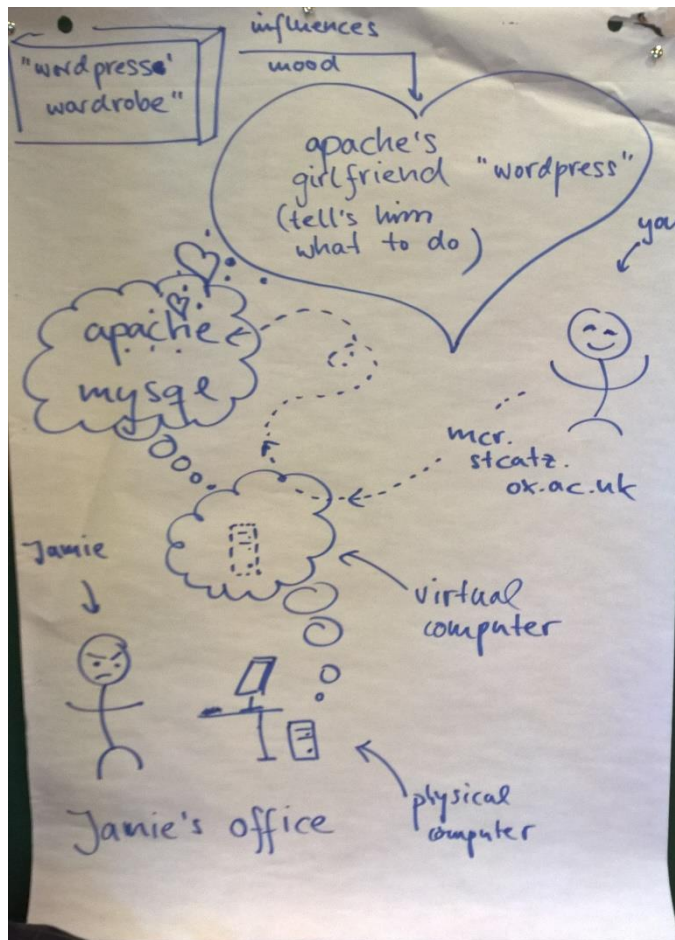 "wordpress'
wardrobe"
influences
mood
apache's
girlfriend
(tell's him
what to do)
"wordpress"
you
apache
mysql
mcr.
stcatz.
ox.ac.uk
Jamie
virtual
computer
physical
computer
Jamie's office